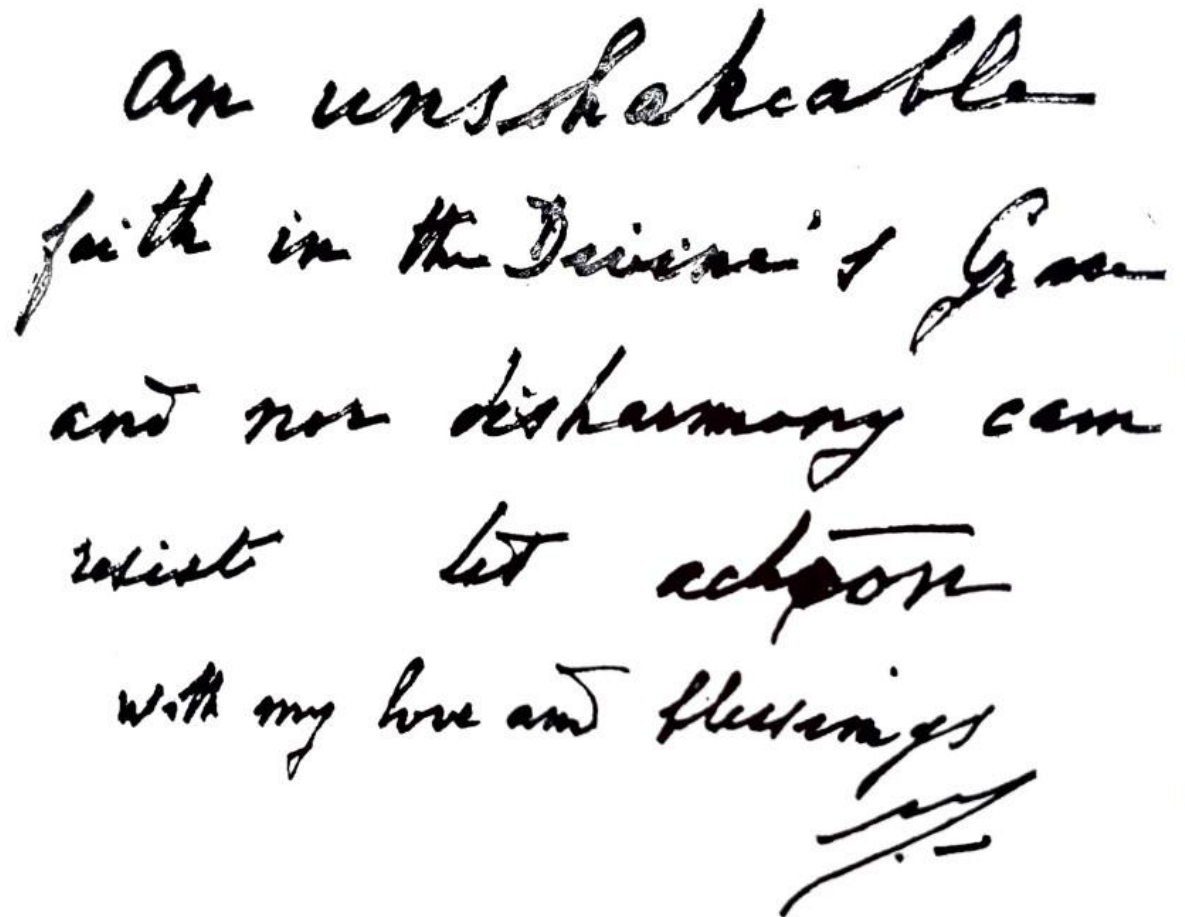 An unshakeable
faith in the Divine's Grace
and no disharmony can
resist its action
with my love and blessings